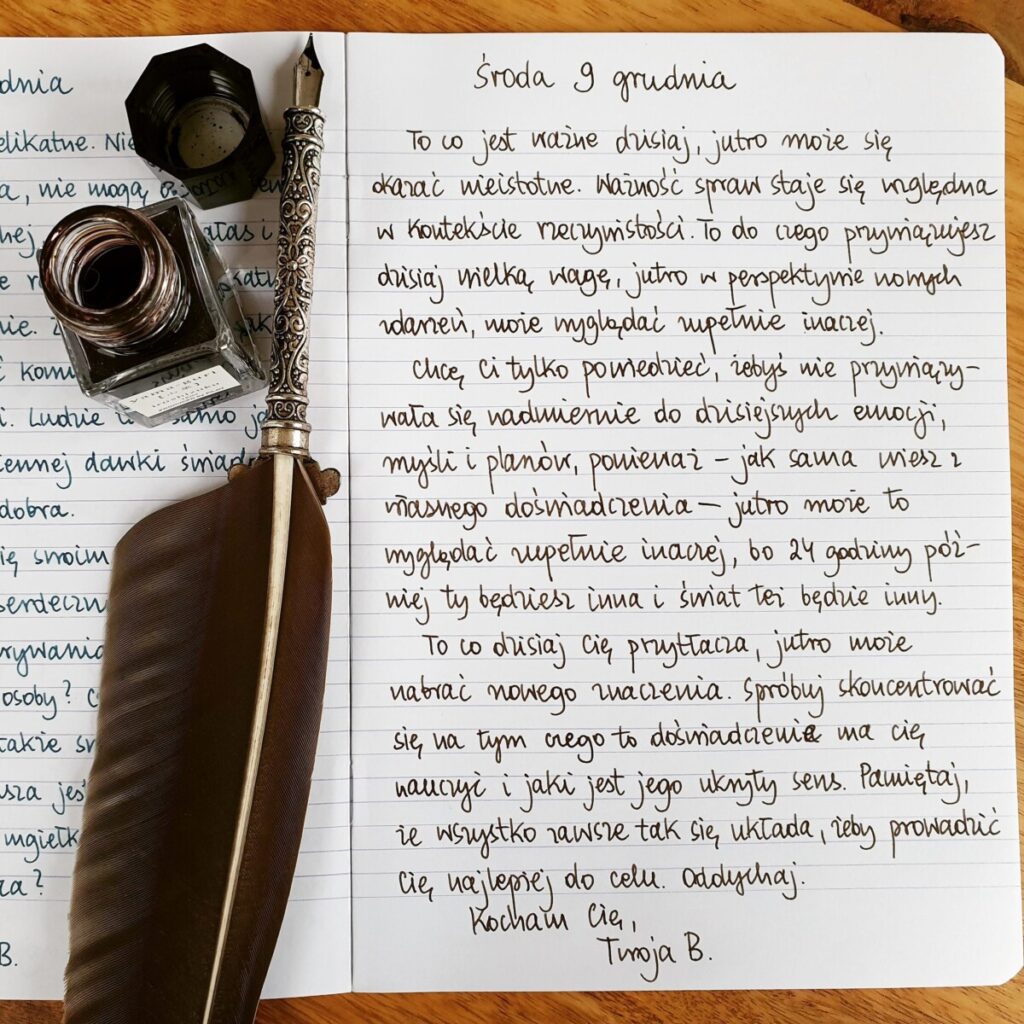 dnia
elikatne. Nie
a, nie mogą
hej,
ałas i
nie.
Ludzie
samo
ennej dawki
dobra.
ię swoim
serdeczn
rywania
osoby?
takie
usza jes
mgiełk
za?
B.
Środa 9 grudnia
To co jest ważne dzisiaj, jutro może się
okazać nieistotne. Ważność spraw staje się względna
w kontekście rzeczywistości. To do czego przywiązujesz
dzisiaj wielką wagę, jutro w perspektywie nowych
zdarzeń, może wyglądać zupełnie inaczej.
Chcę Ci tylko powiedzieć, żebyś nie przywiązy-
wała się nadmiernie do dzisiejszych emocji,
myśli i planów, ponieważ – jak sama wiesz z
własnego doświadczenia – jutro może to
wyglądać zupełnie inaczej, bo 24 godziny póź-
niej ty będziesz inna i świat też będzie inny.
To co dzisiaj Cię przytłacza, jutro może
nabrać nowego znaczenia. Spróbuj skoncentrować
się na tym czego to doświadczenie ma cię
nauczyć i jaki jest jego ukryty sens. Pamiętaj,
że wszystko zawsze tak się układa, żeby prowadzić
Cię najlepiej do celu. Oddychaj.
Kocham Cię,
Twoja B.